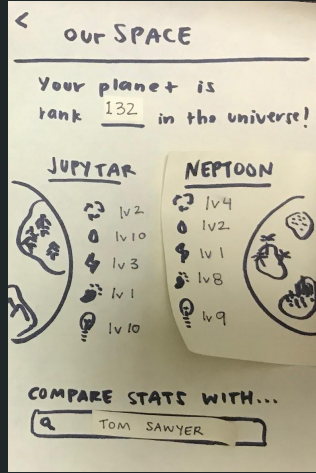 <
our SPACE
Your planet is
rank 132 in the universe!
JUPYTAR
lv2
lv10
lv3
lv1
lv10
NEPTOON
lv4
lv2
lv1
lv8
lv9
COMPARE STATS WITH...
TOM SAWYER